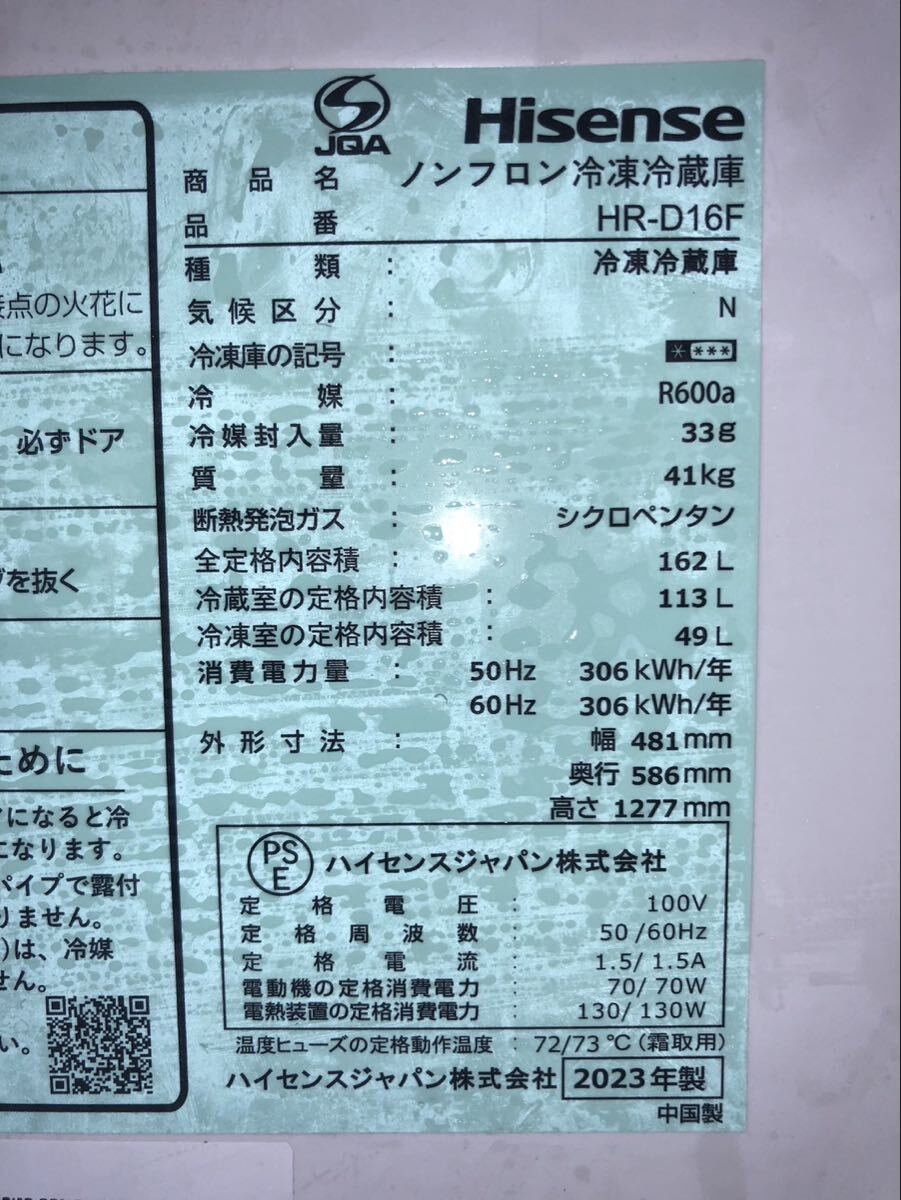 接点の火花に
になります。
必ずドア
グを抜く
ために
になると冷
になります。
パイプで露付
りません。
)は、冷媒
せん。
い。
JQA
Hisense
商品名 ノンフロン冷凍冷蔵庫
品番 HR-D16F
種類 : 冷凍冷蔵庫
気候区分 : N
冷凍庫の記号 : * ***
冷媒 : R600a
冷媒封入量 : 33g
質量 : 41kg
断熱発泡ガス : シクロペンタン
全定格内容積 : 162 L
冷蔵室の定格内容積 : 113 L
冷凍室の定格内容積 : 49 L
消費電力量 : 50Hz 306 kWh/年
60Hz 306 kWh/年
外形寸法 : 幅 481mm
奥行 586mm
高さ 1277mm
PSE ハイセンスジャパン株式会社
定格電圧 : 100V
定格周波数 : 50/60Hz
定格電流 : 1.5/1.5A
電動機の定格消費電力 : 70/70W
電熱装置の定格消費電力 : 130/130W
温度ヒューズの定格動作温度 : 72/73℃(霜取用)
ハイセンスジャパン株式会社 2023年製
中国製